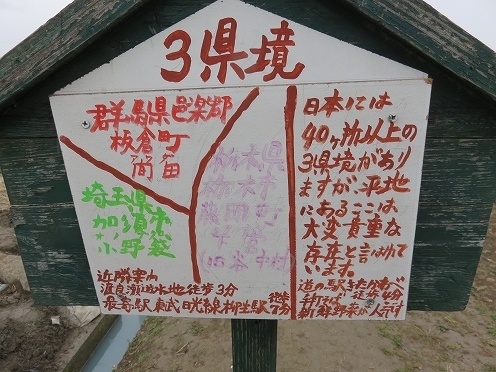 3県境
群馬県邑楽郡
板倉町
海老瀬
栃木県
栃木市
藤岡町
下宮
(旧谷中村)
埼玉県
加須市
小野袋
日本には
40ヶ所以上の
3県境があり
ますが、平地
にあるここは
大変貴重な
存在と言われて
います。
近隣案内
渡良瀬遊水地徒歩3分
最寄駅 東武日光線柳生駅 徒歩7分
道の駅きたかわべ
行きは 徒歩4分
新鮮野菜が人気です